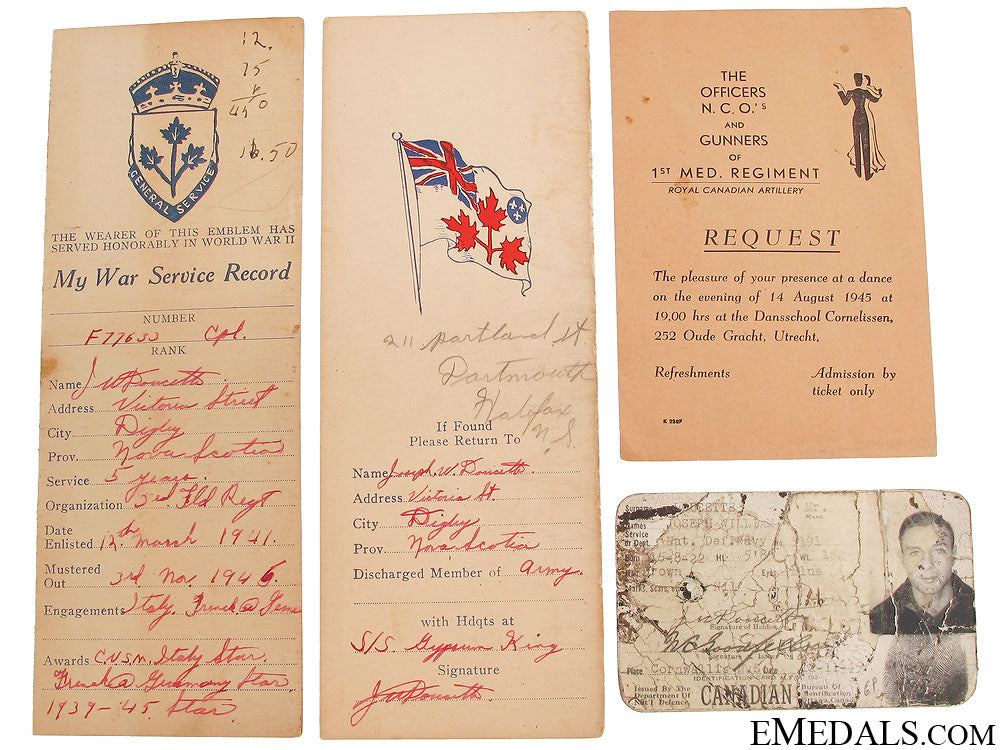 12.
15
6
450
16.50
GENERAL SERVICE
THE WEARER OF THIS EMBLEM HAS
SERVED HONORABLY IN WORLD WAR II
My War Service Record
NUMBER
F77633 Cpl.
RANK
Name J W Doucette
Address Victoria Street
City Digby
Prov. Nova Scotia
Service 5 years.
Organization 3rd Fld Regt
Date
Enlisted 12th March 1941.
Mustered
Out 3rd Nov. 1946.
Engagements Italy. French @
Awards C.V.S.M. Italy Star.
French @ Germany Star
1939-45 Star.
211 Partland St
Dartmouth
Halifax
N.S.
If Found
Please Return To
Name Joseph. W. Doucette
Address Victoria St.
City Digby
Prov. Nova Scotia
Discharged Member of Army.
with Hdqts at
S/S. Gypsum King
Signature
J W Doucette
THE
OFFICERS
N.C.O.'s
AND
GUNNERS
OF
1ST MED. REGIMENT
ROYAL CANADIAN ARTILLERY
REQUEST
The pleasure of your presence at a dance
on the evening of 14 August 1945 at
19,00 hrs at the Dansschool Cornelissen,
252 Oude Gracht, Utrecht,
Refreshments Admission by
ticket only
K 2269
Surname DOUCETTE Mr.
RANK
Names JOSEPH WILLIAM
Service
or Dept. Nat. Def. Navy No.
Born 15-8-22 Ht. 5'8 Wt. 152
Brown Eyes Blue
Marks, Scars, etc. Nil
J W Doucette
Signature of Holder
Signature
Place Cornwallis N.S. Date
IDENTIFICATION CARD M.F.M. 182
Issued By The
Department Of
Nat'l Defence. CANADIAN Bureau of
Identification
Ottawa, Canada
EMEDALS.COM